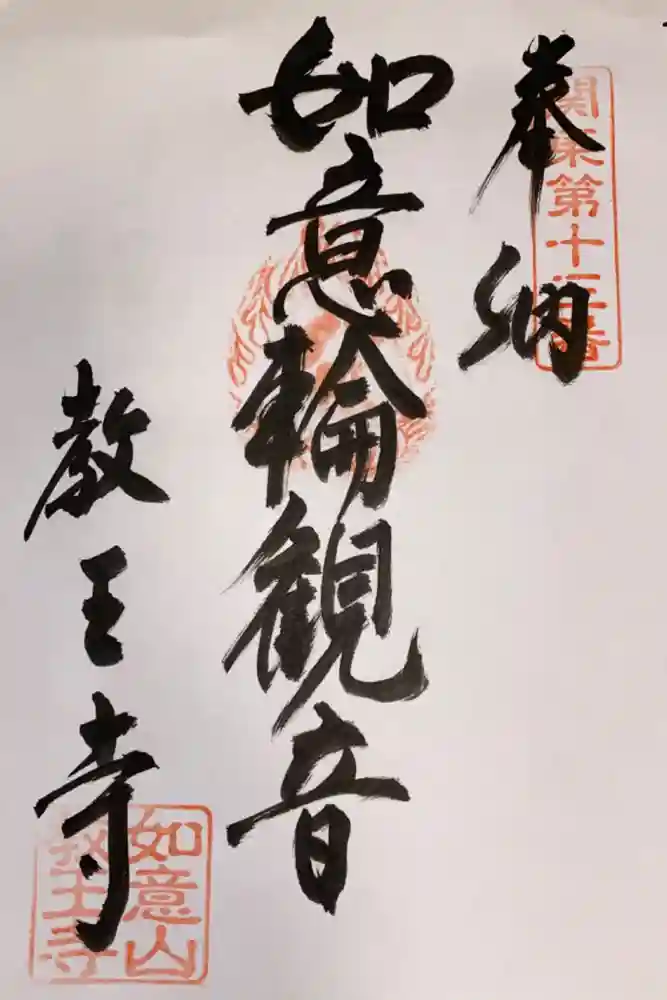 奉納
関東第十五番
如意輪観音
教王寺
如意山
教王寺